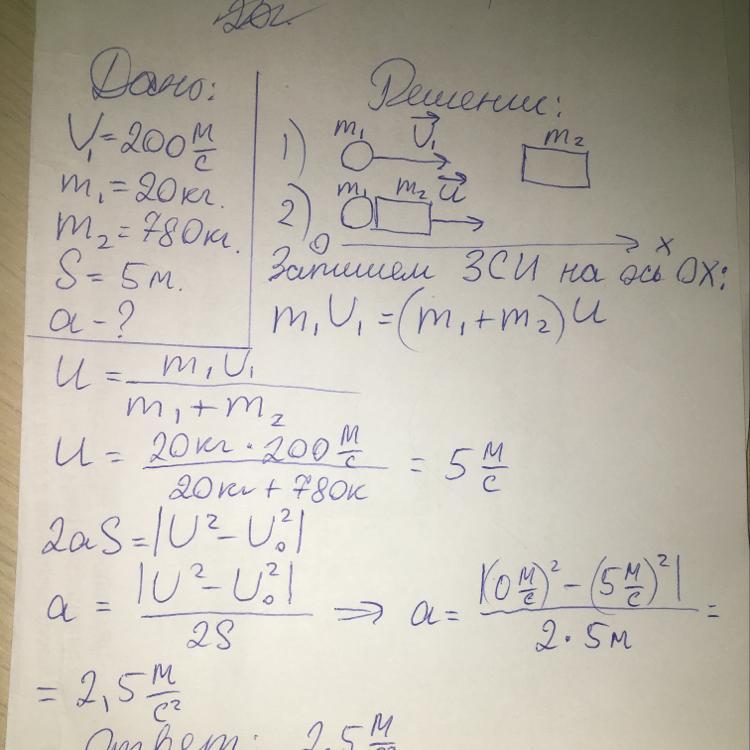 Дано:
V₁ = 200 м/с
m₁ = 20 кг.
m₂ = 780 кг.
S = 5 м.
a - ?
Решение:
1) m₁ V⃗₁ m₂
2) m₁ m₂ u⃗
0 x
Запишем ЗСИ на ось OX:
m₁V₁ = (m₁ + m₂)u
u = m₁V₁ / (m₁ + m₂)
u = (20кг · 200 м/с) / (20кг + 780к) = 5 м/с
2aS = |V² - V₀²|
a = |V² - V₀²| / 2S => a = |(0 м/с)² - (5 м/с)²| / (2 · 5м) =
= 2,5 м/с²
Ответ: 2,5 м/с²